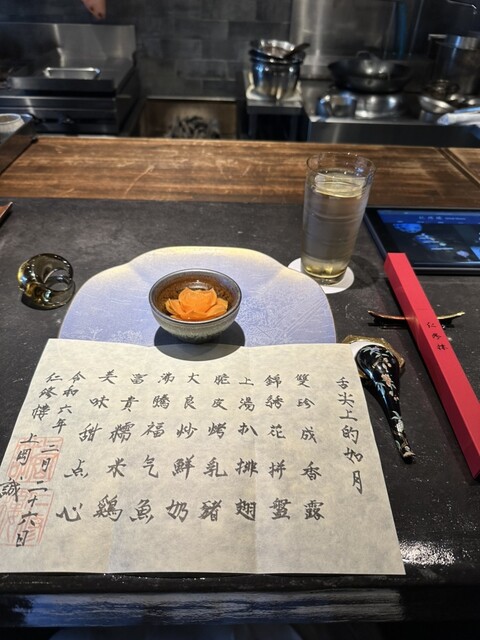 舌尖上的如月
雙珍成香露
錦綉花拼盤
上湯扒排翅
脆皮烤乳豬
大良炒鮮奶
沸騰福气魚
富貴糯米鷄
美味甜点心
令和六年二月二十六日
仁修樓 上岡誠
仁修樓